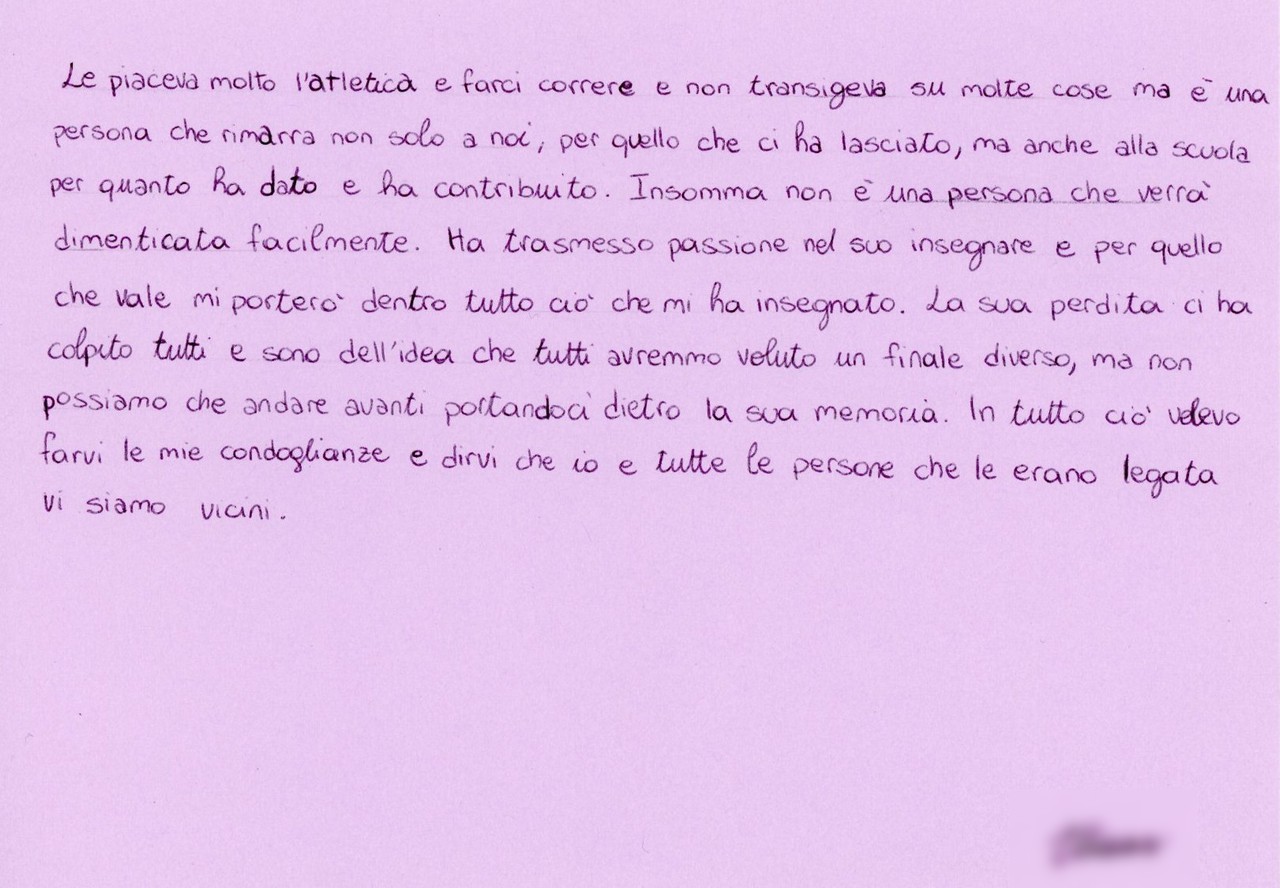 Le piaceva molto l'atletica e farci correre e non transigeva su molte cose ma è una
persona che rimarra non solo a noi, per quello che ci ha lasciato, ma anche alla scuola
per quanto ha dato e ha contribuito. Insomma non è una persona che verrà
dimenticata facilmente. Ha trasmesso passione nel suo insegnare e per quello
che vale mi porterò dentro tutto ciò che mi ha insegnato. La sua perdita ci ha
colpito tutti e sono dell'idea che tutti avremmo voluto un finale diverso, ma non
possiamo che andare avanti portandoci dietro la sua memoria. In tutto ciò volevo
farvi le mie condoglianze e dirvi che io e tutte le persone che le erano legata
vi siamo vicini.